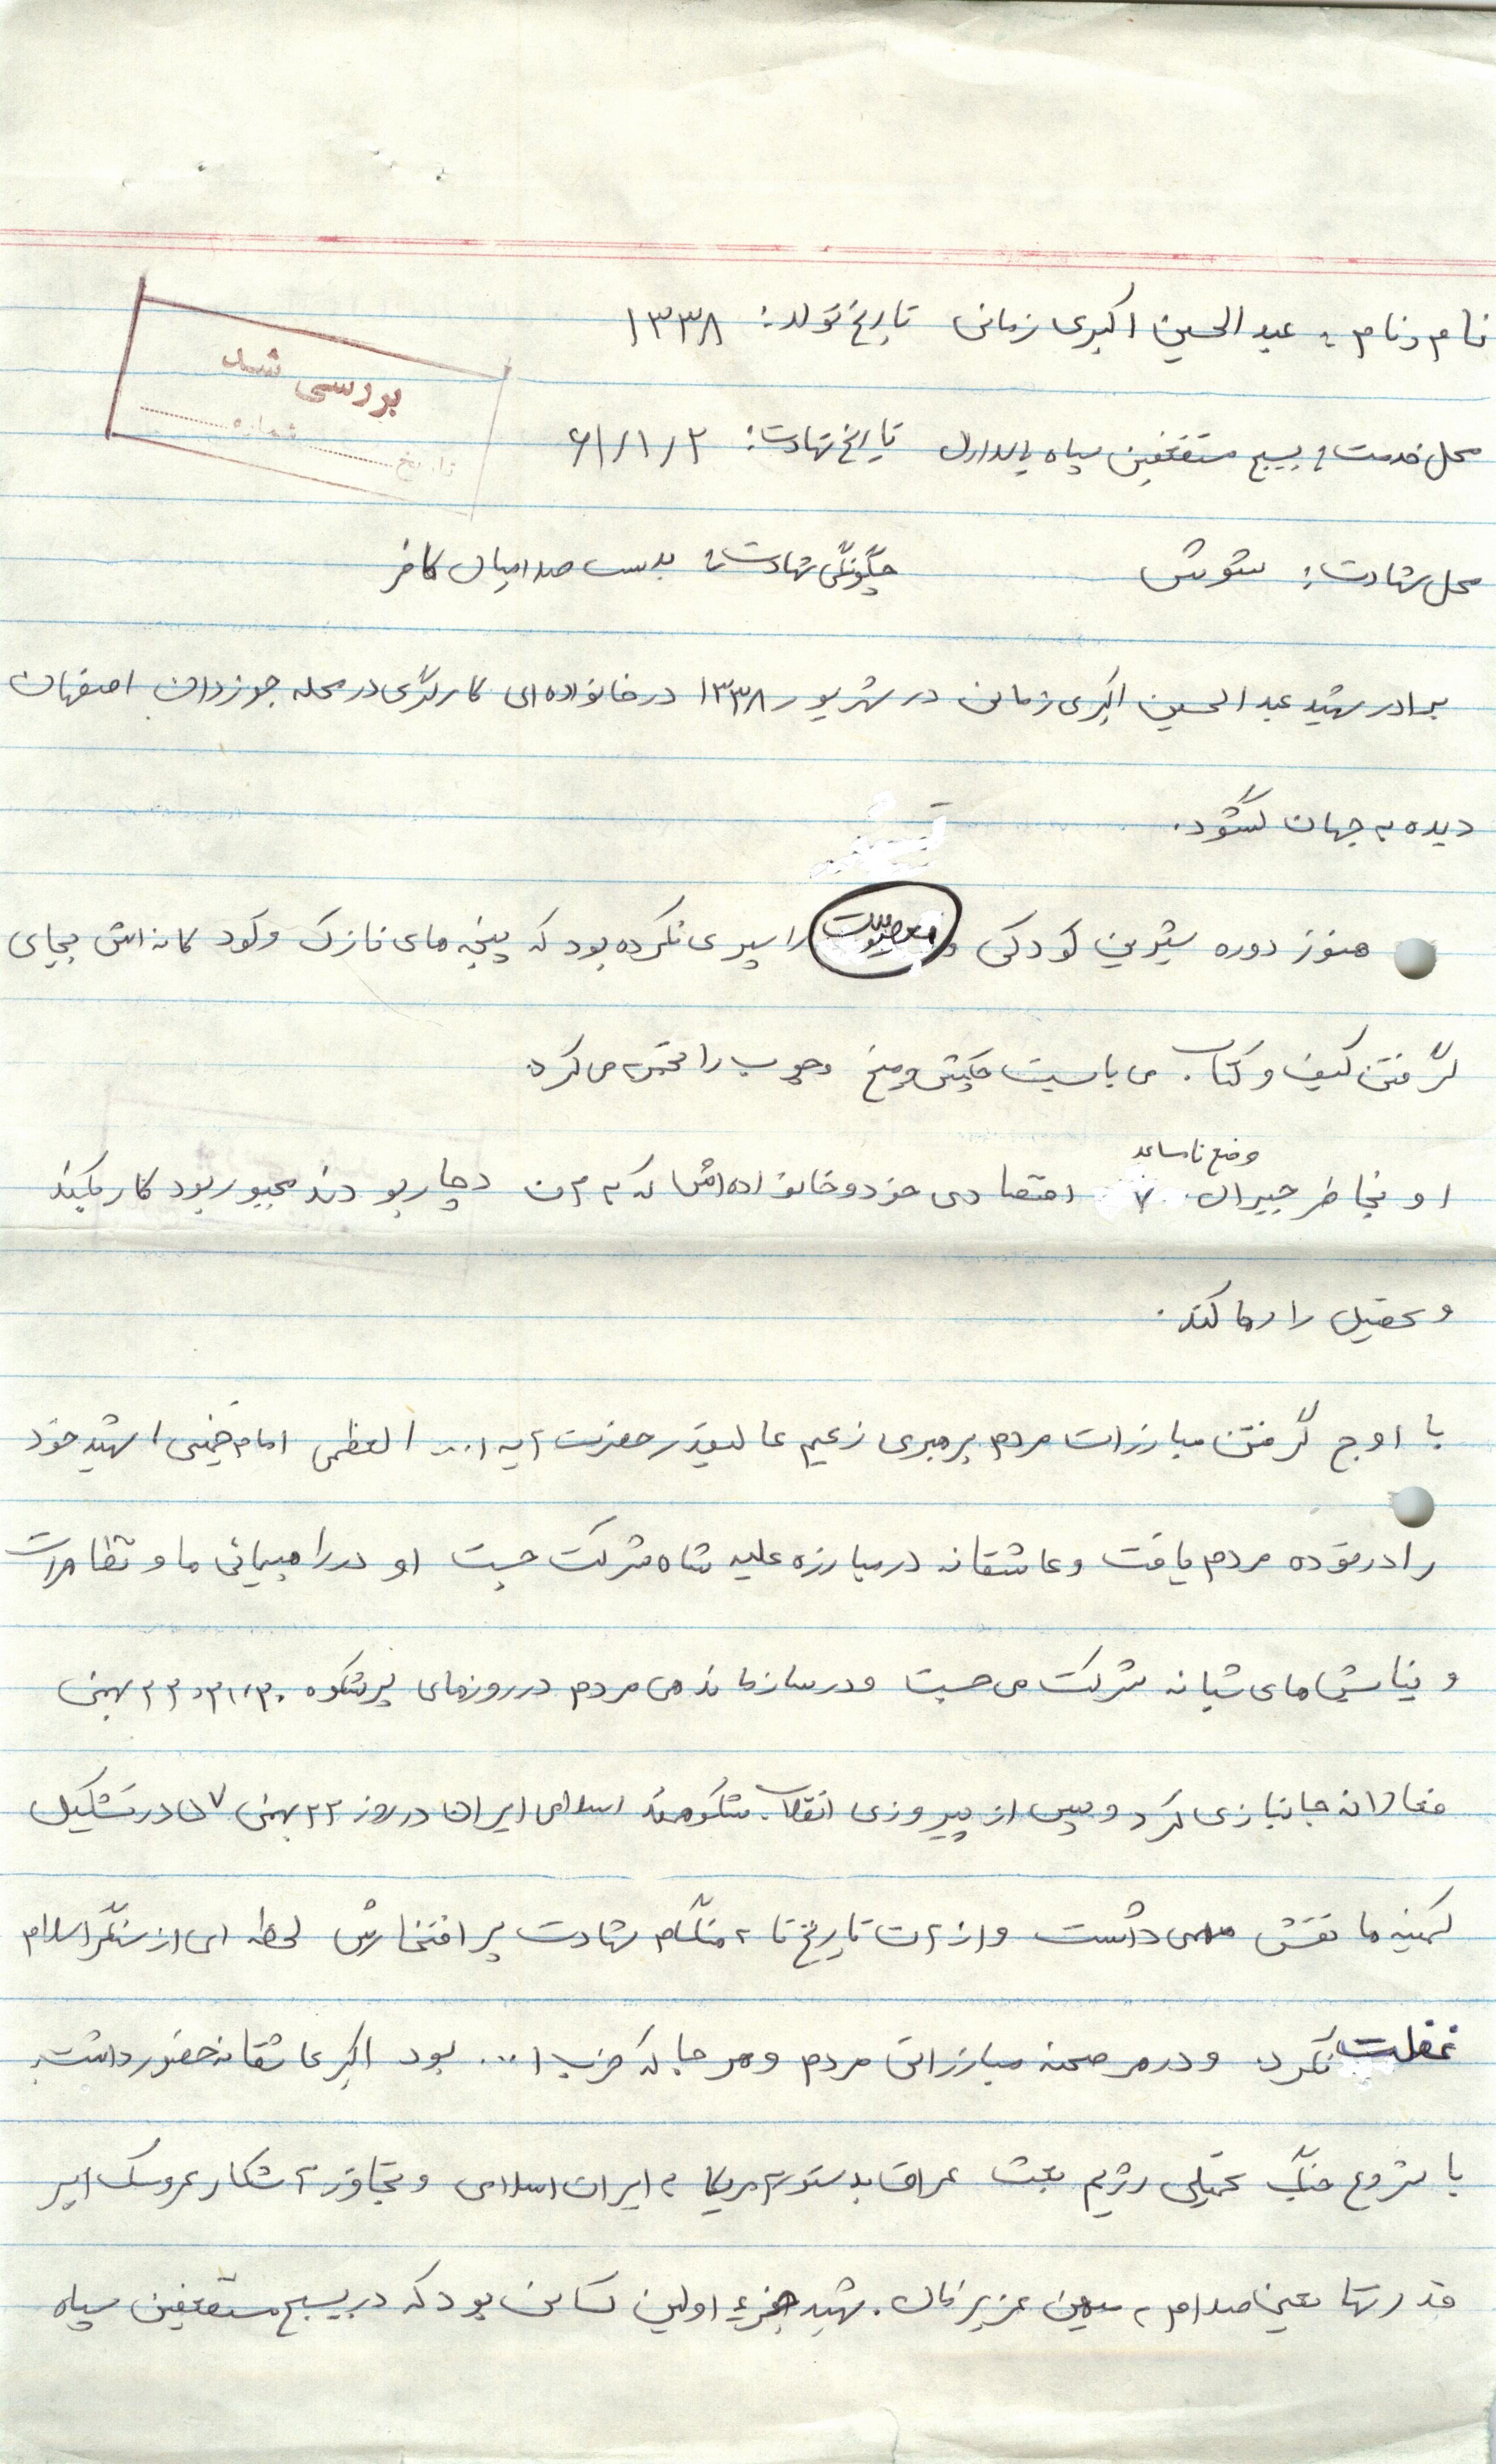 نام و نام : عبدالحسین اکبری زمانی تاریخ تولد: ۱۳۳۸
بررسی شد
شماره
تاریخ
محل خدمت : بسیج مستضعفین سپاه پاسداران تاریخ شهادت: ۶۱/۱/۲
محل شهادت: شوش چگونگی شهادت: بدست صدامیان کافر
برادر شهید عبدالحسین اکبری زمانی در شهریور ۱۳۳۸ در خانواده ای کارگری در محله جوزدان اصفهان
دیده به جهان گشود.
هنوز دوره شیرین کودکی و معصومیت را سپری نکرده بود که پنجه های نازک و کودکانه اش بجای
گرفتن کیف و کتاب می بایست چکش و میخ و چوب را می کرد
وضع نامساعد
او بخاطر جبران ۷ اقتصادی خود و خانواده اش که به آن دچار بودند مجبور بود کار بکند
و تحصیل را رها کند.
با اوج گرفتن مبارزات مردم برهبری زعیم عالیقدر حضرت آیه ا... العظمی امام خمینی شهید خود
را در توده مردم یافت و عاشقانه در مبارزه علیه شاه شرکت جست او در راهپیمائی ها و تظاهرات
و نیایش های شبانه شرکت می جست و در سازماندهی مردم در روزهای پرشکوه ۲۰، ۲۱، ۲۲ بهمن
فعالانه جانبازی کرد و پس از پیروزی انقلاب شکوهمند اسلامی ایران در روز ۲۲ بهمن ۵۷ در تشکیل
کمیته ها نقش مهمی داشت و از آن تاریخ تا به هنگام شهادت پر افتخارش لحظه ای از سنگر اسلام
غفلت نکرد و در هر صحنه مبارزاتی مردم و هر جا که حزب ا... بود اکبر عاشقانه حضور داشت.
با شروع جنگ تحمیلی رژیم بعث عراق بدستور آمریکا به ایران اسلامی و تجاوز آشکار عروسک ابر
قدرتها یعنی صدام به میهن عزیزمان. شهید جزء اولین کسانی بود که در بسیج مستضعفین سپاه